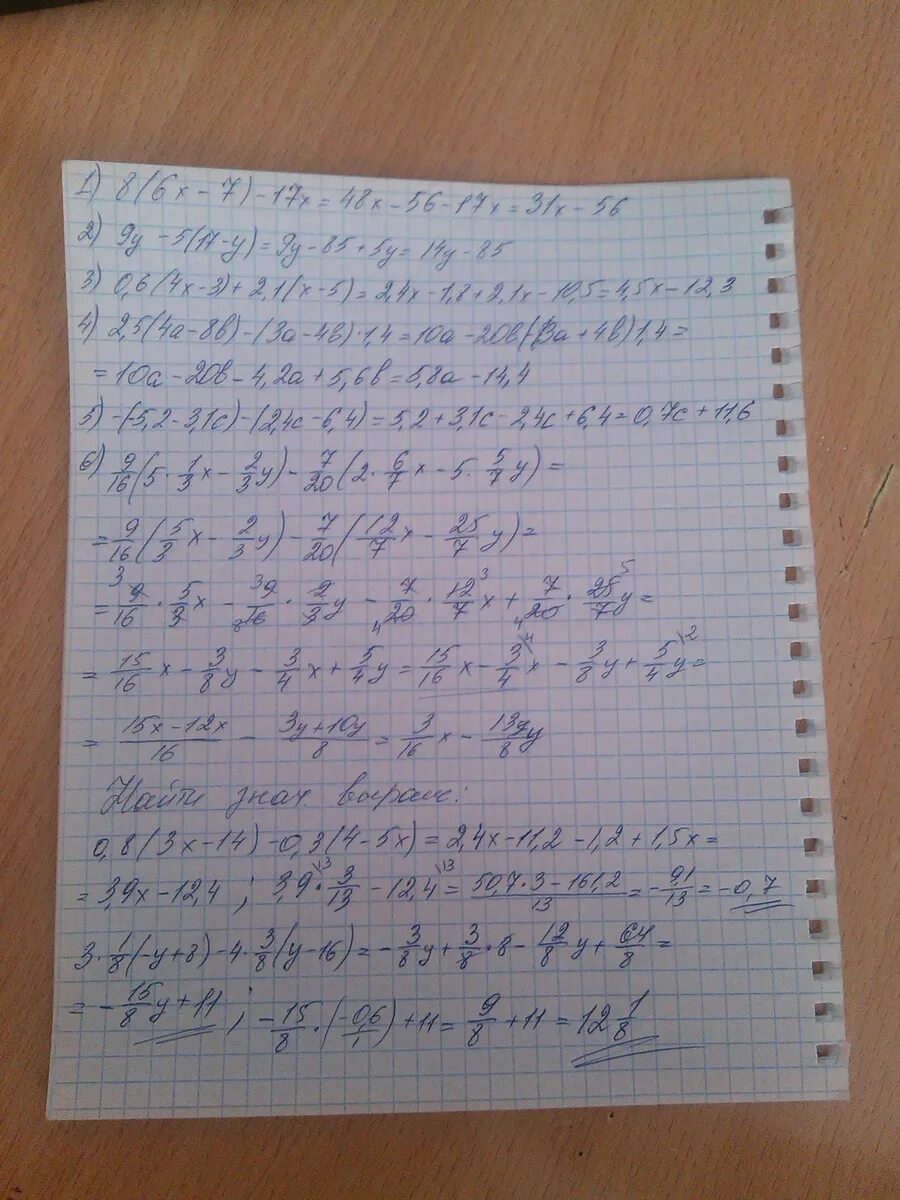 1) 8(6x - 7) - 17x = 48x - 56 - 17x = 31x - 56
2) 9y - 5(17 - y) = 9y - 85 + 5y = 14y - 85
3) 0,6(4x - 3) + 2,1(x - 5) = 2,4x - 1,8 + 2,1x - 10,5 = 4,5x - 12,3
4) 2,5(4a - 8в) - (3a - 4в)·1,4 = 10a - 20в(-3a + 4в)1,4 =
= 10a - 20в - 4,2a + 5,6в = 5,8a - 14,4
5) -(-5,2 - 3,1c) - (2,4c - 6,4) = 5,2 + 3,1c - 2,4c + 6,4 = 0,7c + 11,6
6) 9/16(5·1/3x - 2/3y) - 7/20(2·6/7x - 5·5/7y) =
= 9/16(5/3x - 2/3y) - 7/20(12/7x - 25/7y) =
= 9/16·5/3x - 9/16·2/3y - 7/20·12/7x + 7/20·25/7y =
= 15/16x - 3/8y - 3/4x + 5/4y = 15/16x - 3/4x - 3/8y + 5/4y =
= 15x - 12x/16 - 3y + 10y/8 = 3/16x - 13/8y
Найти знач выраж:
0,8(3x - 14) - 0,3(4 - 5x) = 2,4x - 11,2 - 1,2 + 1,5x =
= 3,9x - 12,4 ; 3,9·3/13 - 12,4 = 50,7·3 - 161,2/13 = -9,1/13 = -0,7
3·1/8(-y + 8) - 4·3/8(y - 16) = -3/8y + 3/8·8 - 12/8y + 64/8 =
= -15/8y + 11 ; -15/8·(-0,6/1) + 11 = 9/8 + 11 = 12 1/8